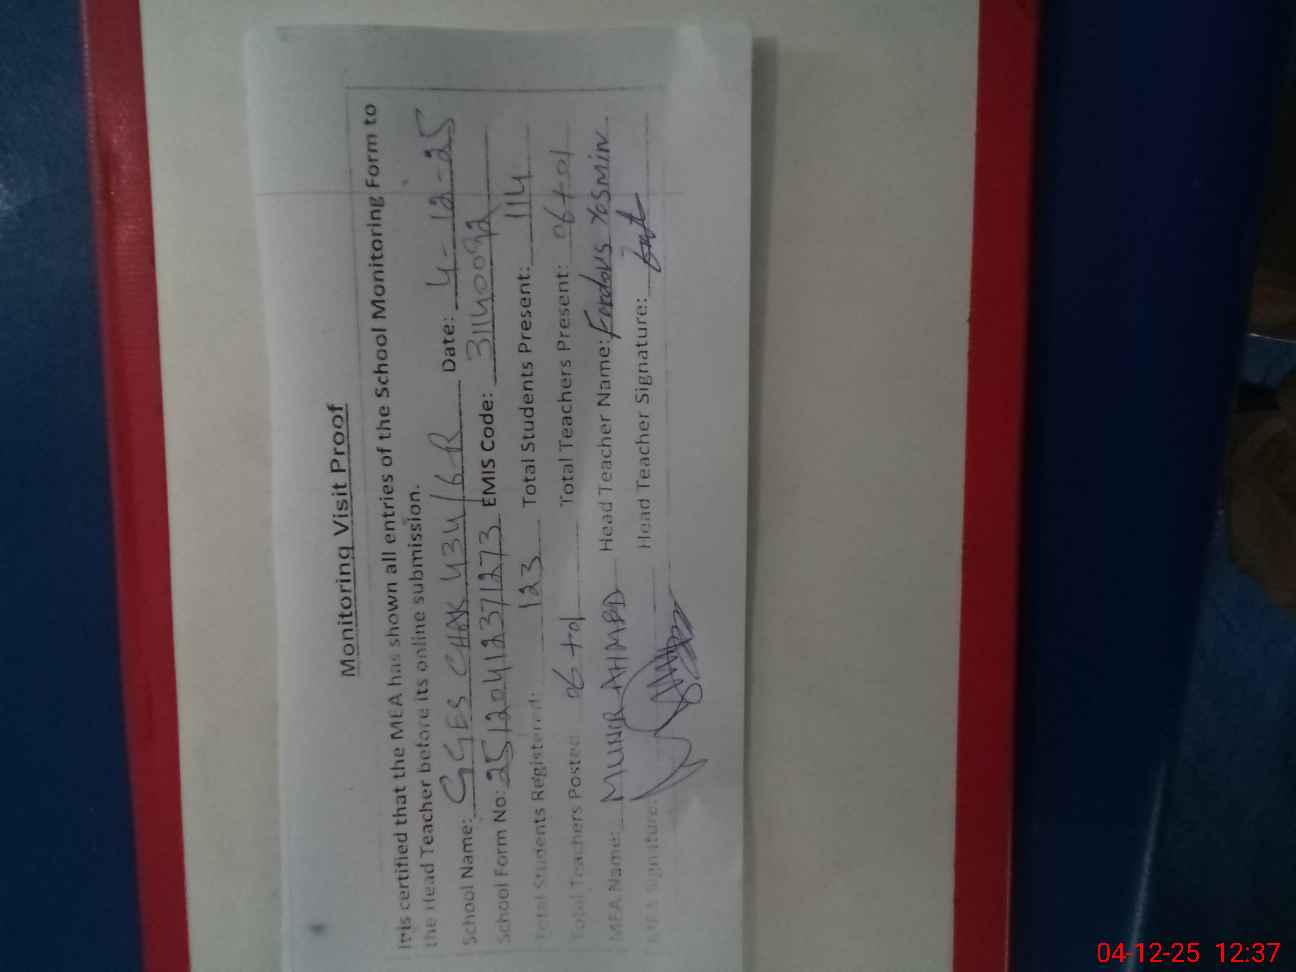 Monitoring Visit Proof
It is certified that the MEA has shown all entries of the School Monitoring Form to
the Head Teacher before its online submission.
School Name: GGES CHAK 434/6-R Date: 4-12-25
School Form No: 251204123712​73 EMIS Code: 31140092
Total Students Registered: 123 Total Students Present: 114
Total Teachers Posted: 06+01 Total Teachers Present: 06+01
MEA Name: MUNIR AHMAD Head Teacher Name: Yasmin
MEA Signature: Head Teacher Signature:
04-12-25 12:37